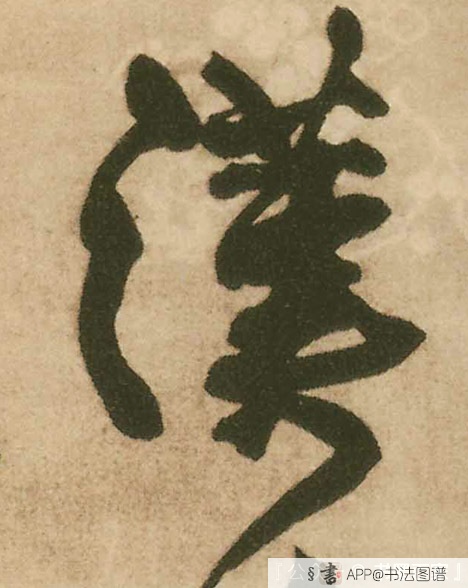 漢
書 APP@书法图谱